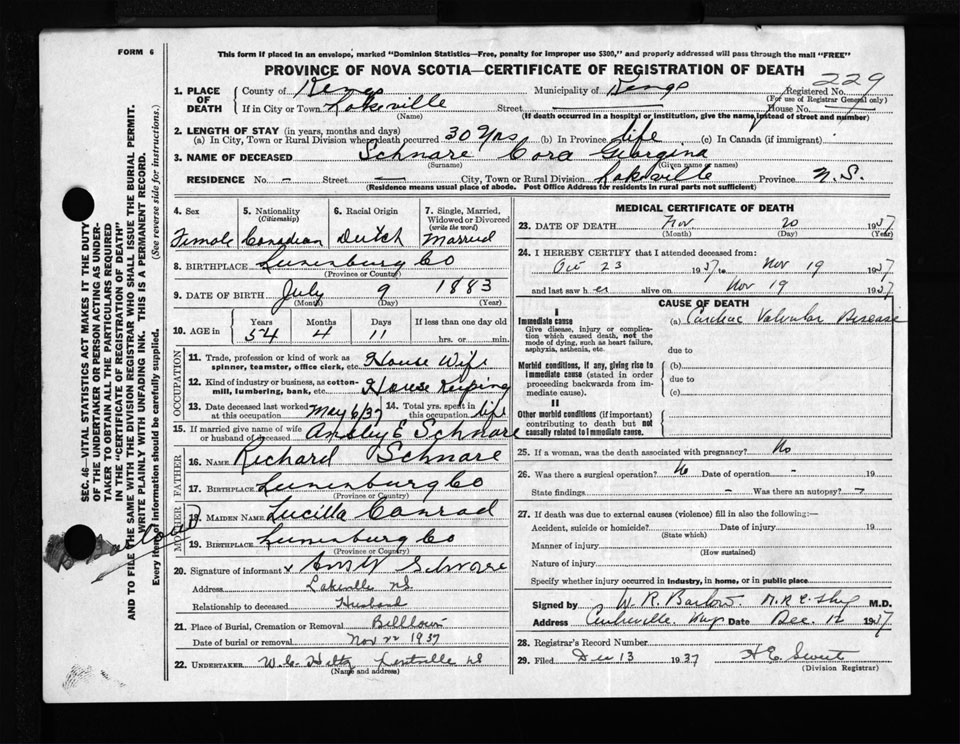 FORM 6
This form if placed in an envelope, marked "Dominion Statistics—Free, penalty for improper use $300," and properly addressed will pass through the mail "FREE"
PROVINCE OF NOVA SCOTIA—CERTIFICATE OF REGISTRATION OF DEATH
229
1. PLACE OF DEATH
County of Kings Municipality of Kings Registered No.
(For use of Registrar General only)
If in City or Town Lakeville Street — House No. —
(Name) (If death occurred in a hospital or institution, give the name instead of street and number)
2. LENGTH OF STAY (in years, months and days)
(a) In City, Town or Rural Division where death occurred 30 yrs (b) In Province life (c) In Canada (if immigrant)
3. NAME OF DECEASED Schnare Cora Georgina
(Surname) (Given name or names)
RESIDENCE No. – Street — City, Town or Rural Division Lakeville Province N.S.
(Residence means usual place of abode. Post Office Address for residents in rural parts not sufficient)
4. Sex Female
5. Nationality (Citizenship) Canadian
6. Racial Origin Dutch
7. Single, Married, Widowed or Divorced (write the word) Married
8. BIRTHPLACE Lunenburg Co
(Province or Country)
9. DATE OF BIRTH July 9 1883
(Month) (Day) (Year)
10. AGE in Years Months Days If less than one day old
54 4 11 hrs. or min.
OCCUPATION
11. Trade, profession or kind of work as spinner, teamster, office clerk, etc. House Wife
12. Kind of industry or business, as cotton-mill, lumbering, bank, etc. House Keeping
13. Date deceased last worked at this occupation May 6/37 14. Total yrs. spent in this occupation life
15. If married give name of wife or husband of deceased Ansley E Schnare
FATHER
16. NAME Richard Schnare
17. BIRTHPLACE Lunenburg Co
(Province or Country)
MOTHER
18. MAIDEN NAME Lucilla Conrad
19. BIRTHPLACE Lunenburg Co
(Province or Country)
20. Signature of informant x Schnare
Address Lakeville NS
Relationship to deceased Husband
21. Place of Burial, Cremation or Removal
Date of burial or removal Nov 22 1937
22. UNDERTAKER W. E. Hiltz Kentville NS
(Name and address)
MEDICAL CERTIFICATE OF DEATH
23. DATE OF DEATH Nov 20 1937
(Month) (Day) (Year)
24. I HEREBY CERTIFY that I attended deceased from:
Oct 23 1937 to Nov 19 1937
and last saw her alive on Nov 19 1937
CAUSE OF DEATH
I
Immediate cause (a) Cardiac Valvular Disease
Give disease, injury or complication which caused death, not the mode of dying, such as heart failure, asphyxia, asthenia, etc.
due to
Morbid conditions, if any, giving rise to immediate cause (stated in order proceeding backwards from immediate cause).
(b)
due to
(c)
II
Other morbid conditions (if important) contributing to death but not causally related to immediate cause.
25. If a woman, was the death associated with pregnancy? No
26. Was there a surgical operation? No Date of operation - 19
State findings - Was there an autopsy? -
27. If death was due to external causes (violence) fill in also the following:—
Accident, suicide or homicide? Date of injury 19
(State which)
Manner of injury
(How sustained)
Nature of injury
Specify whether injury occurred in industry, in home, or in public place
Signed by W. R. Barlow M.D.
Address Centreville, Date Dec. 12 1937
28. Registrar's Record Number
29. Filed Dec 13 1937 H E Sweet
(Division Registrar)
SEC. 46—VITAL STATISTICS ACT MAKES IT THE DUTY
OF THE UNDERTAKER OR PERSON ACTING AS UNDER-
TAKER TO OBTAIN ALL THE PARTICULARS REQUIRED
IN THE "CERTIFICATE OF REGISTRATION OF DEATH"
AND TO FILE THE SAME WITH THE DIVISION REGISTRAR WHO SHALL ISSUE THE BURIAL PERMIT.
WRITE PLAINLY WITH UNFADING INK. THIS IS A PERMANENT RECORD.
Every item of information should be carefully supplied. (See reverse side for instructions.)